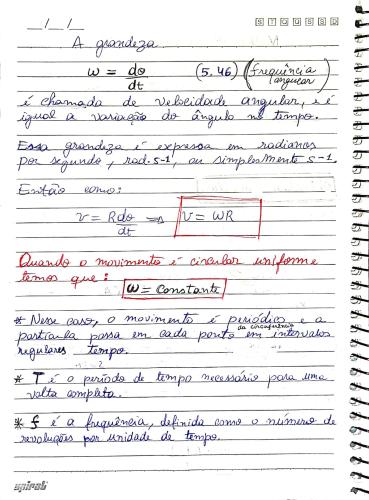 __/__/__ S T Q Q S S D
A grandeza
ω = dθ/dt (5.46) (frequência angular)
é chamada de velocidade angular, e é
igual a variação do ângulo no tempo.
Essa grandeza é expressa em radianos
por segundo, rad.s-1, ou simplesmente s-1.
Então como:
v = R dθ/dt ⟹ v = ωR
Quando o movimento é circular uniforme
temos que:
ω = constante
* Nesse caso, o movimento é periódico e a
partícula passa em cada ponto da circunferência em intervalos
regulares tempo.
* T é o período de tempo necessário para uma
volta completa.
* f é a frequência, definida como o número de
revoluções por unidade de tempo.
spiral